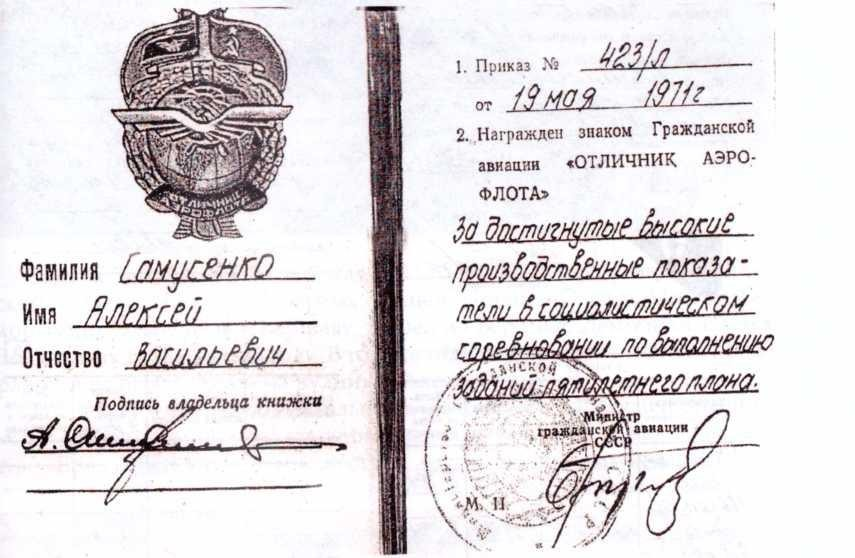 ОТЛИЧНИК
АЭРОФЛОТА
Фамилия Самусенко
Имя Алексей
Отчество Васильевич
Подпись владельца книжки
1. Приказ № 423/л
от 19 мая 1971г
2. Награжден знаком Гражданской
авиации «ОТЛИЧНИК АЭРО-
ФЛОТА»
За достигнутые высокие
производственные показа-
тели в социалистическом
соревновании по выполнению
заданий пятилетнего плана.
Министр
гражданской авиации
СССР
М. П.